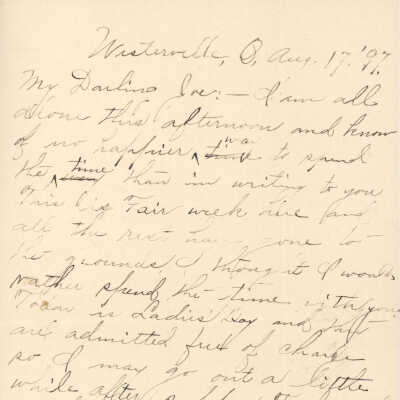 Westerville, O, Aug. 17. '97.
My Darling Joe:— I am all
alone this afternoon and know
of no happier way to spend
the time than in writing to you
This is Fair week here and
all the rest have gone to
the grounds I thought I would
rather spend the time with you
Today is Ladies' Day and that
are admitted free of charge
so I may go out a little
while after